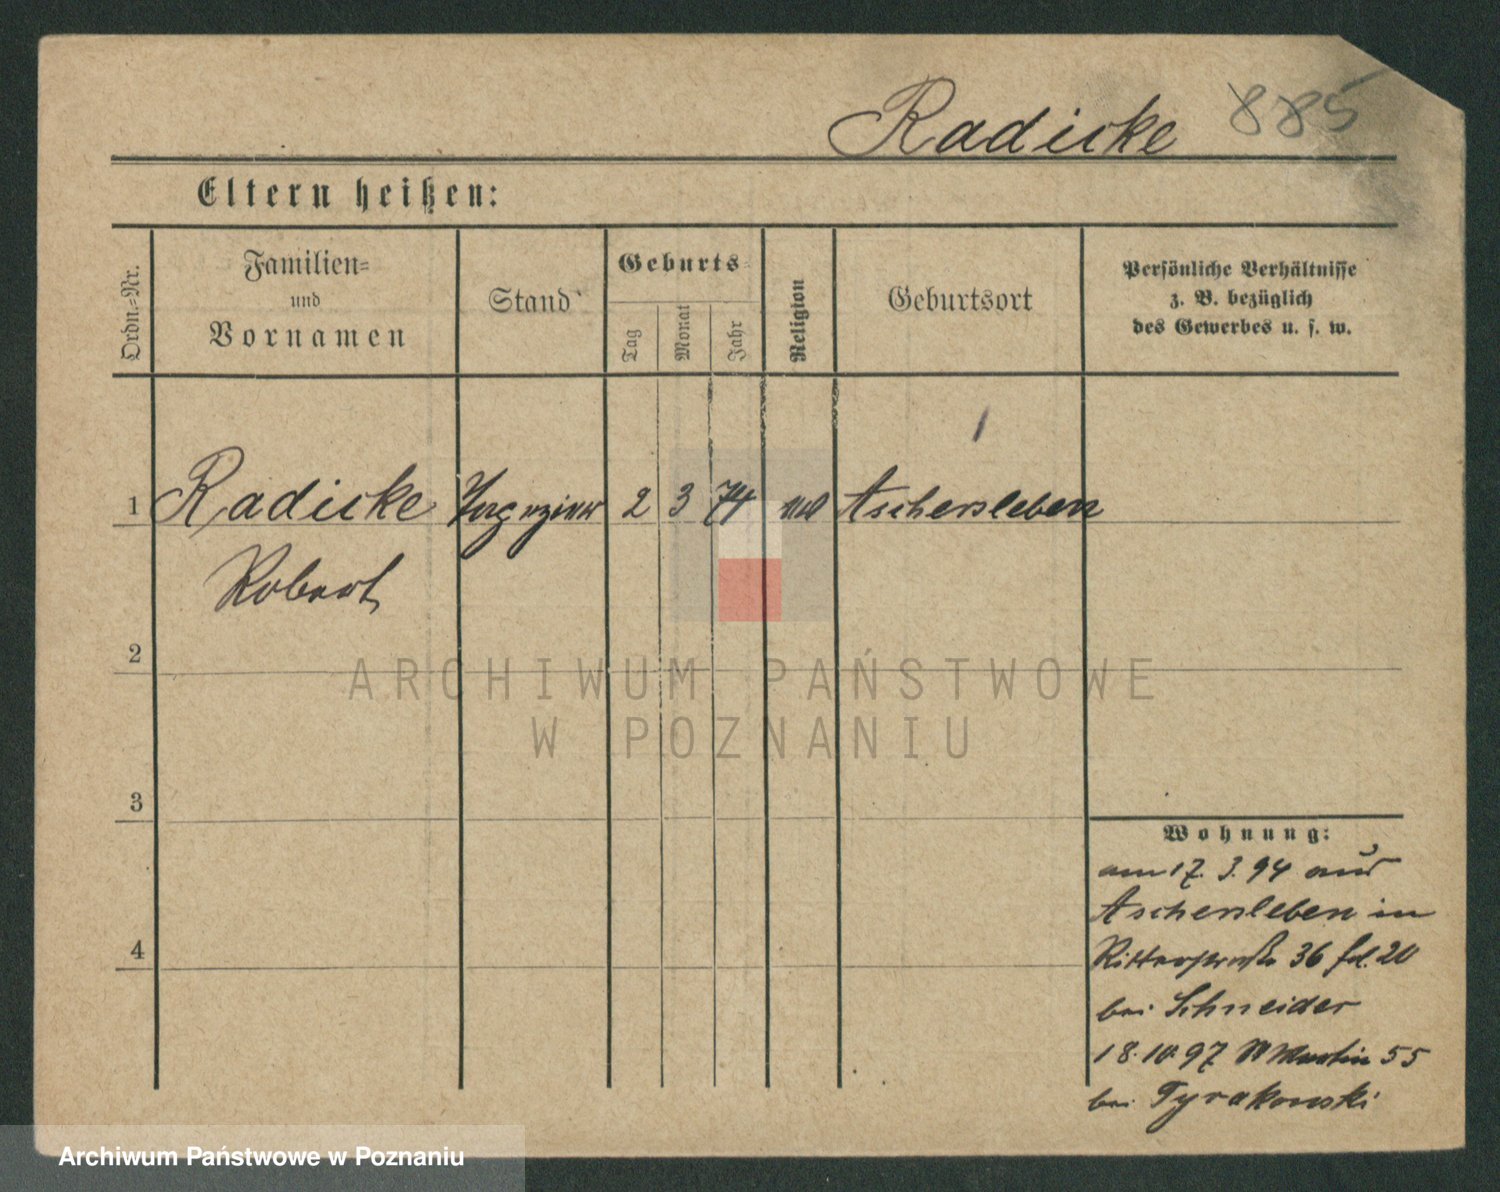 Radicke 885
Eltern heißen:
Ordn.=Nr.
Familien=
und
Vornamen
Stand
Geburts=
Tag
Monat
Jahr
Religion
Geburtsort
Persönliche Verhältnisse
z. B. bezüglich
des Gewerbes u. s. w.
1 Radicke 2 3 74 Aschersleben
Robert
2
ARCHIWUM PAŃSTWOWE
W POZNANIU
3
Wohnung:
am 17. 3. 94 aus
Aschersleben in
4
Ritterstraße 36
bei Schneider
18.10.97 Martin 55
bei Tyrakowski
Archiwum Państwowe w Poznaniu